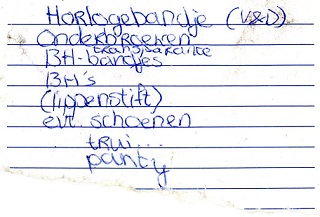 Horlogebandje (V&D)
Onderbroeken
transparante
BH-bandjes
BH's
(lippenstift)
evt. schoenen
trui...
panty